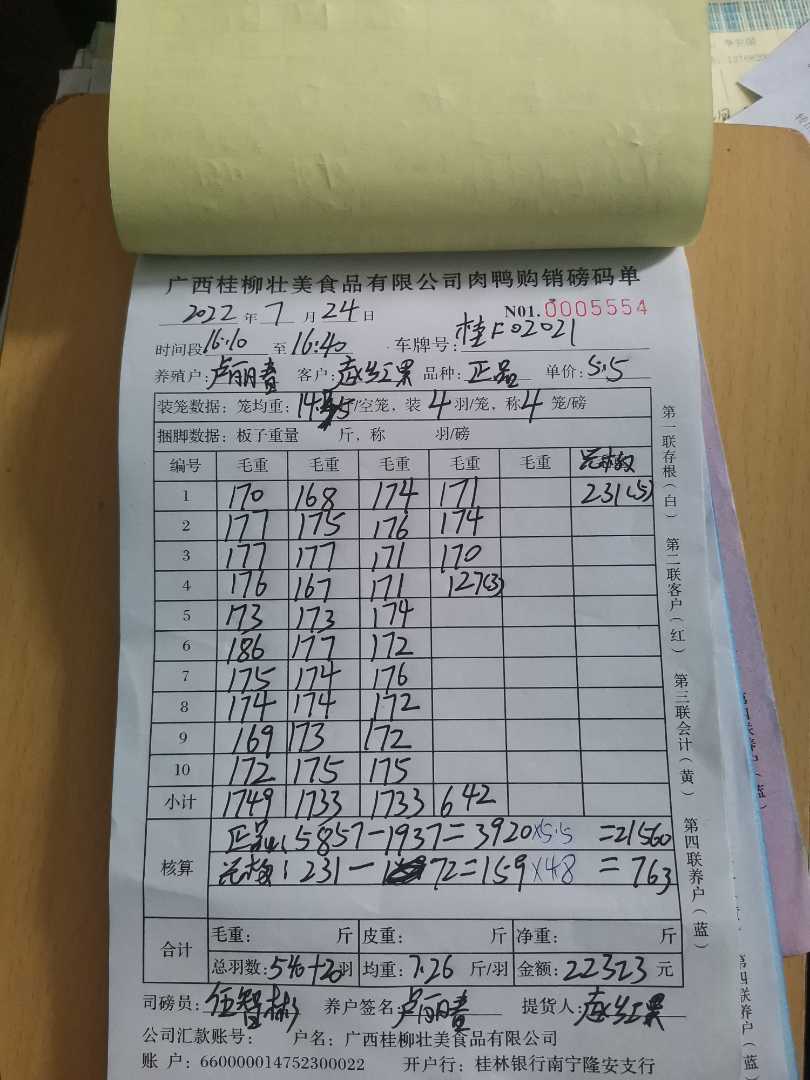 广西桂柳壮美食品有限公司肉鸭购销磅码单
2022年7月24日 N01.0005554
时间段16:10至16:40 车牌号:桂F02021
养殖户:卢丽青 客户: 品种:正品 单价:5.5
装笼数据:笼均重:14.5斤/空笼,装4羽/笼,称4笼/磅
捆脚数据:板子重量 斤,称 羽/磅
编号 毛重 毛重 毛重 毛重 毛重
1 170 168 174 171 231(5)
2 177 175 176 174
3 177 177 171 170
4 176 167 171 127(3)
5 173 173 174
6 186 177 172
7 175 174 176
8 174 174 172
9 169 173 172
10 172 175 175
小计 1749 1733 1733 642
核算
正品:5857-1937=3920×5.5=21560
231-72=159×4.8=763
合计
毛重: 斤 皮重: 斤 净重: 斤
总羽数:540+20羽 均重:7.26斤/羽 金额:22323元
司磅员:伍智彬 养户签名:卢丽青 提货人:
公司汇款账号: 户名:广西桂柳壮美食品有限公司
账 户:660000014752300022 开户行:桂林银行南宁隆安支行
第一联存根(白) 第二联客户(红) 第三联会计(黄) 第四联养户(蓝)